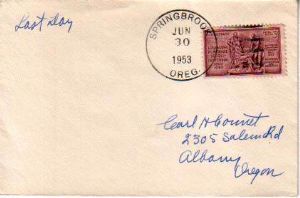 Last Day
SPRINGBROOK
JUN
30
1953
OREG.
Carl H
2305 Salem Rd
Albany
Oregon